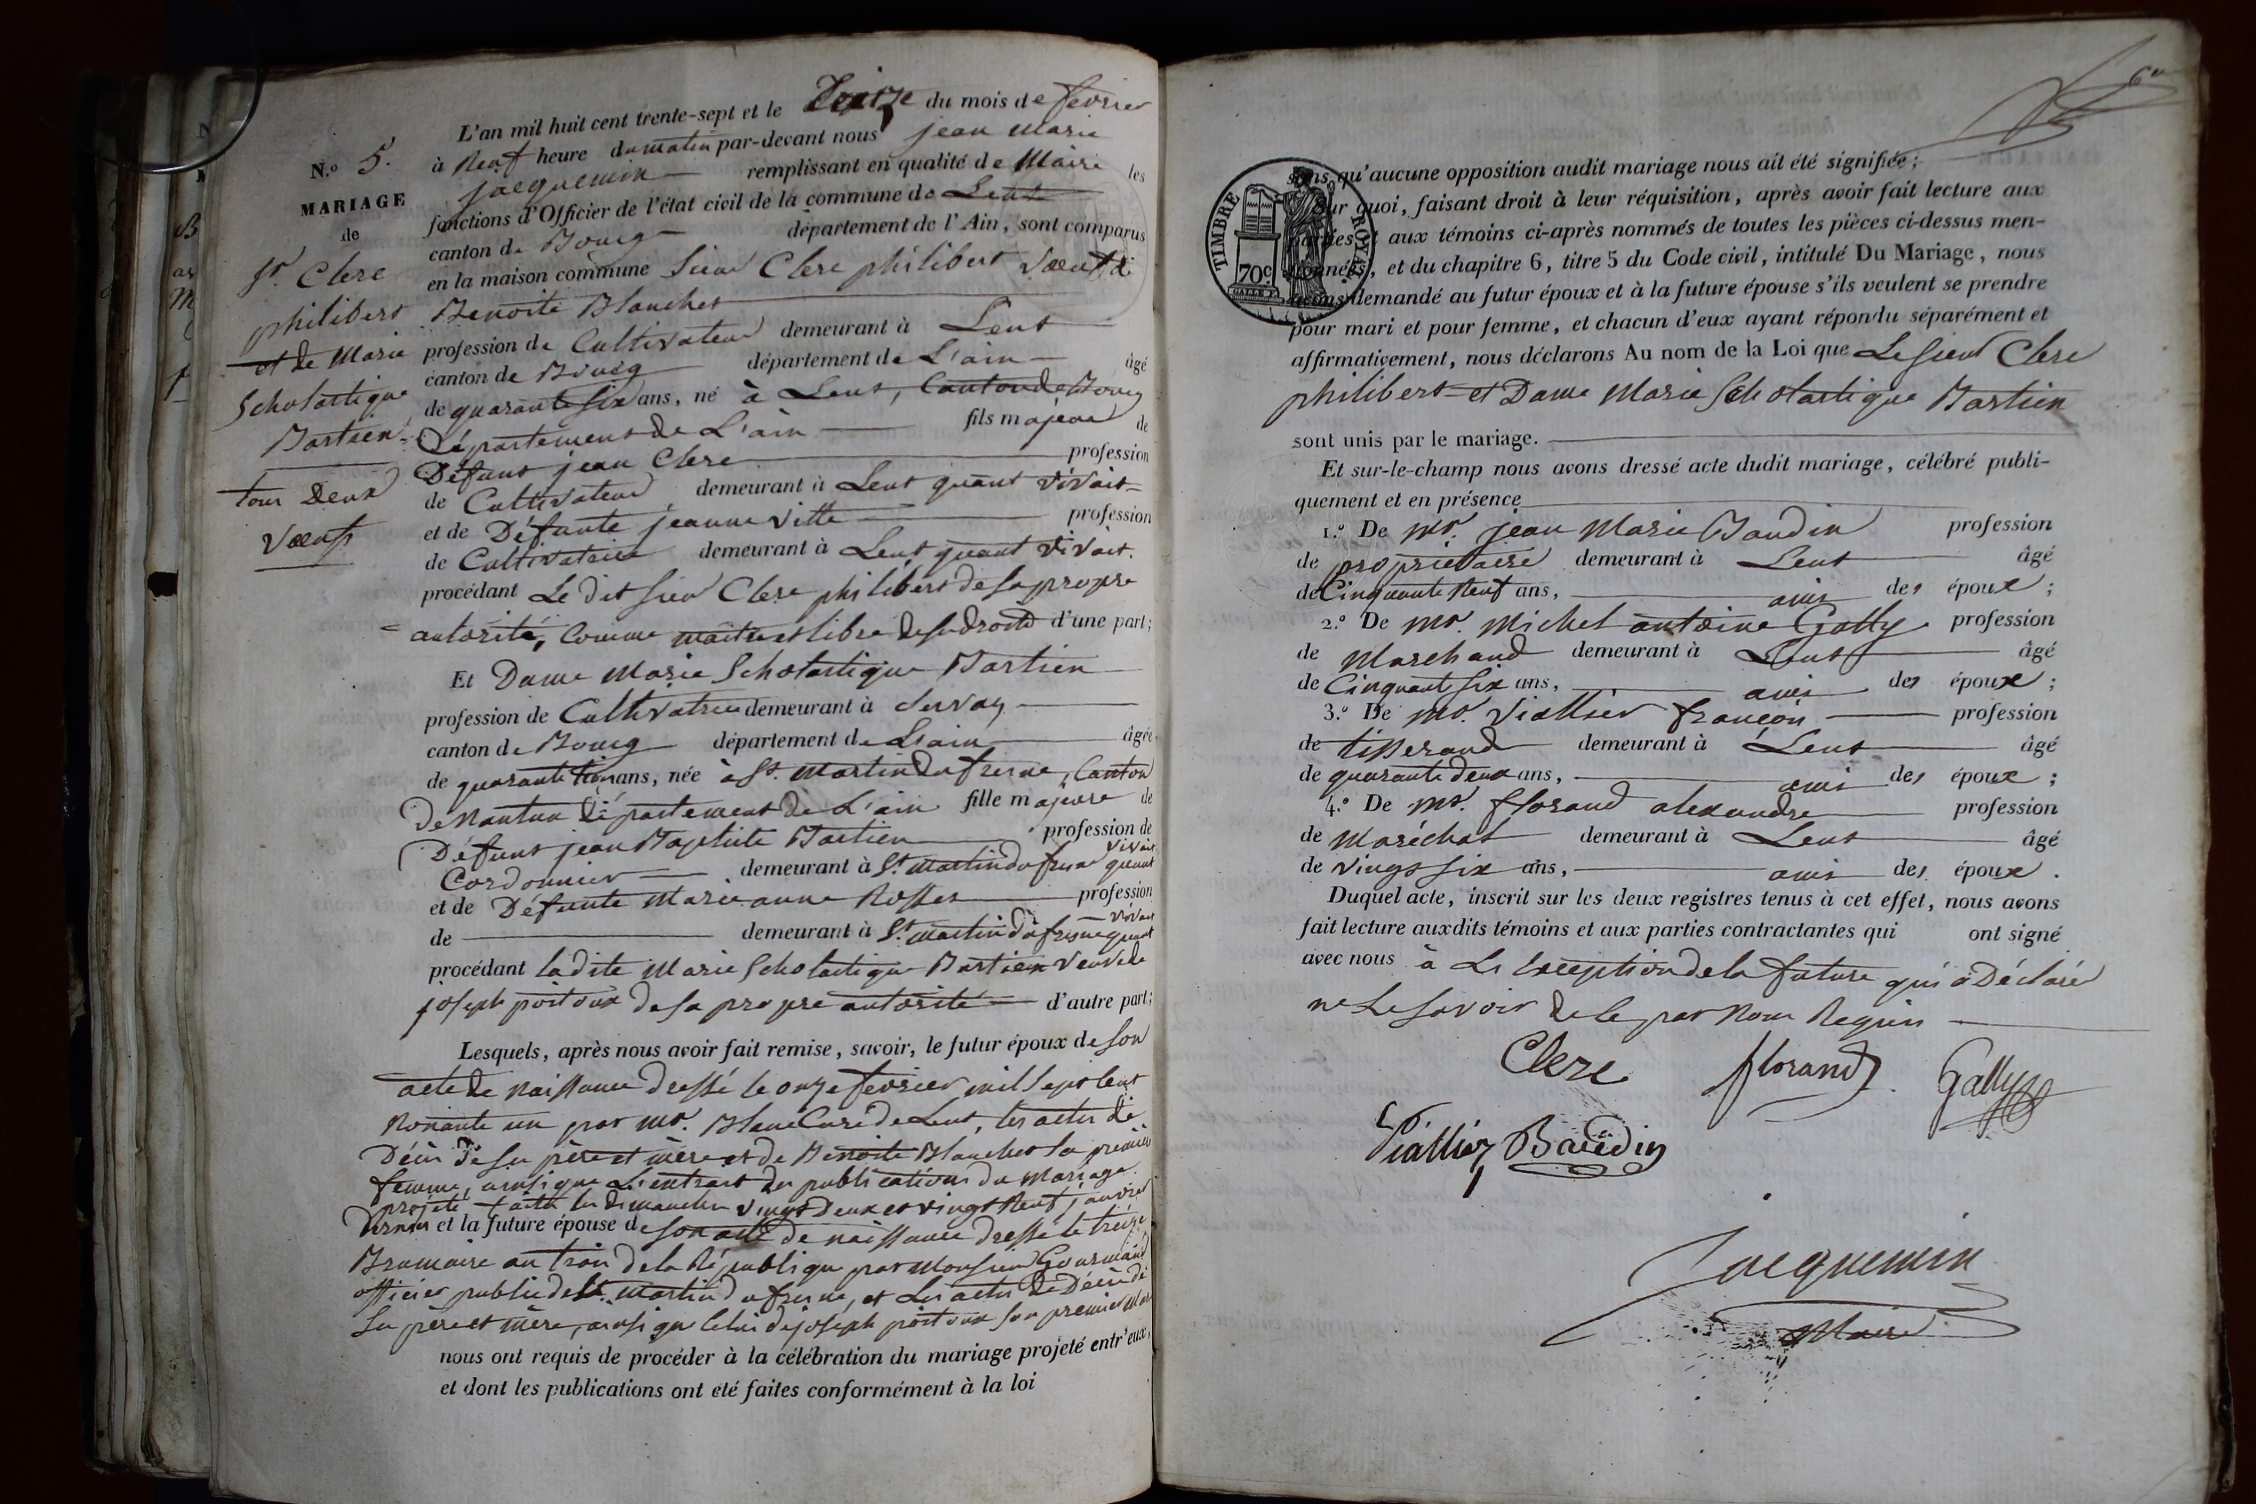 L'an mil huit cent trente-sept et le Treize du mois de fevrier
N.º 5. à Neuf heure du matin par-devant nous jean marie
jacquemin remplissant en qualité de Maire les
MARIAGE
fonctions d'Officier de l'état civil de la commune de Lent
de
canton de Bourg département de l'Ain, sont comparus
Sr. Clerc
en la maison commune Sieur Clerc philibert Vœuf de
philibert
Benoite Blanchet
et de Marie
profession de Cultivateur demeurant à Lent
canton de Bourg département de L'ain âgé
Scholastique
de quarante six ans, né à Lent, Canton de Bourg
Bastien
Département de L'ain fils majeur de
Défunt jean Clerc profession
tous Deux
de Cultivateur demeurant à Lent quant vivait
Vœufs
et de Défunte jeanne Vitte profession
de Cultivatrice demeurant à Lent quant vivait.
procédant Le dit Sieur Clerc philibert de sa propre
autorité, Comme maitre et libre de ses droits d'une part;
Et Dame Marie Scholastique Bastien
profession de Cultivatrice demeurant à Servas
canton de Bourg département de L'ain âgée
de quarante trois ans, née à St. Martin du fresne, Canton
de Nantua Département de L'ain fille majeure de
Défunt jean Baptiste Bastien profession de
Cordonnier demeurant à St. Martin du fresne quant vivait
et de Défunte Marie anne Rosset profession
de demeurant à St. Martin du fresne quant vivait
procédant La dite Marie Scholastique Bastien Veuve de
joseph poitoux de sa propre autorité d'autre part;
Lesquels, après nous avoir fait remise, savoir, le futur époux de Son
acte de naissance dressé le onze fevrier mil sept Cent
Nonante un par Mr. Blanc Curé de Lent, les actes de
Décès de ses père et mère et de Benoite Blanchet sa première
femme, ainsi que L'extrait des publications du Mariage
projeté faites les dimanches vingt deux et vingt Neuf janvier
Dernier et la future épouse de son acte de naissance dressé le treize
Brumaire an trois de la République par Monsieur Gourmand
officier public de St. Martin du fresne, et Les actes de Décès de
Ses père et mère, ainsi que Celui de joseph poitoux son premier Mari
nous ont requis de procéder à la célébration du mariage projeté entr'eux,
et dont les publications ont eté faites conformément à la loi
TIMBRE ROYAL
70 c.
sans qu'aucune opposition audit mariage nous ait été signifiée;
Sur quoi, faisant droit à leur réquisition, après avoir fait lecture aux
parties, aux témoins ci-après nommés de toutes les pièces ci-dessus men-
tionnées, et du chapitre 6, titre 5 du Code civil, intitulé Du Mariage, nous
avons demandé au futur époux et à la future épouse s'ils veulent se prendre
pour mari et pour femme, et chacun d'eux ayant répondu séparément et
affirmativement, nous déclarons Au nom de la Loi que Le Sieur Clerc
philibert et Dame Marie Scholastique Bastien
sont unis par le mariage.
Et sur-le-champ nous avons dressé acte dudit mariage, célébré publi-
quement et en présence
1.º De Mr. jean Marie Baudin profession
de proprietaire demeurant à Lent âgé
de Cinquante Neuf ans, amis des époux;
2.º De Mr. Michel antoine Gally profession
de Marchand demeurant à Lent âgé
de Cinquante six ans, amis des époux;
3.º De Mr. Viallier françois profession
de tisserand demeurant à Lent âgé
de quarante deux ans, amis des époux;
4.º De Mr. florand alexandre profession
de Maréchal demeurant à Lent âgé
de vingt six ans, amis des époux.
Duquel acte, inscrit sur les deux registres tenus à cet effet, nous avons
fait lecture auxdits témoins et aux parties contractantes qui ont signé
avec nous à L'exception de la future qui a Déclaré
ne Le Savoir de Ce par Nous Requis
Clerc florand Gally
Viallier Baudin
Jacquemin
Maire